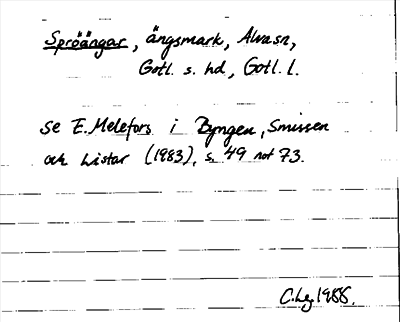 Spröängar, ängsmark, Alva sn,
Gotl. s. hd, Gotl. l.
se E. Melefors i Byngen, Smissen
och Listar (1983), s. 49 not 73.
C. Lg 1988.